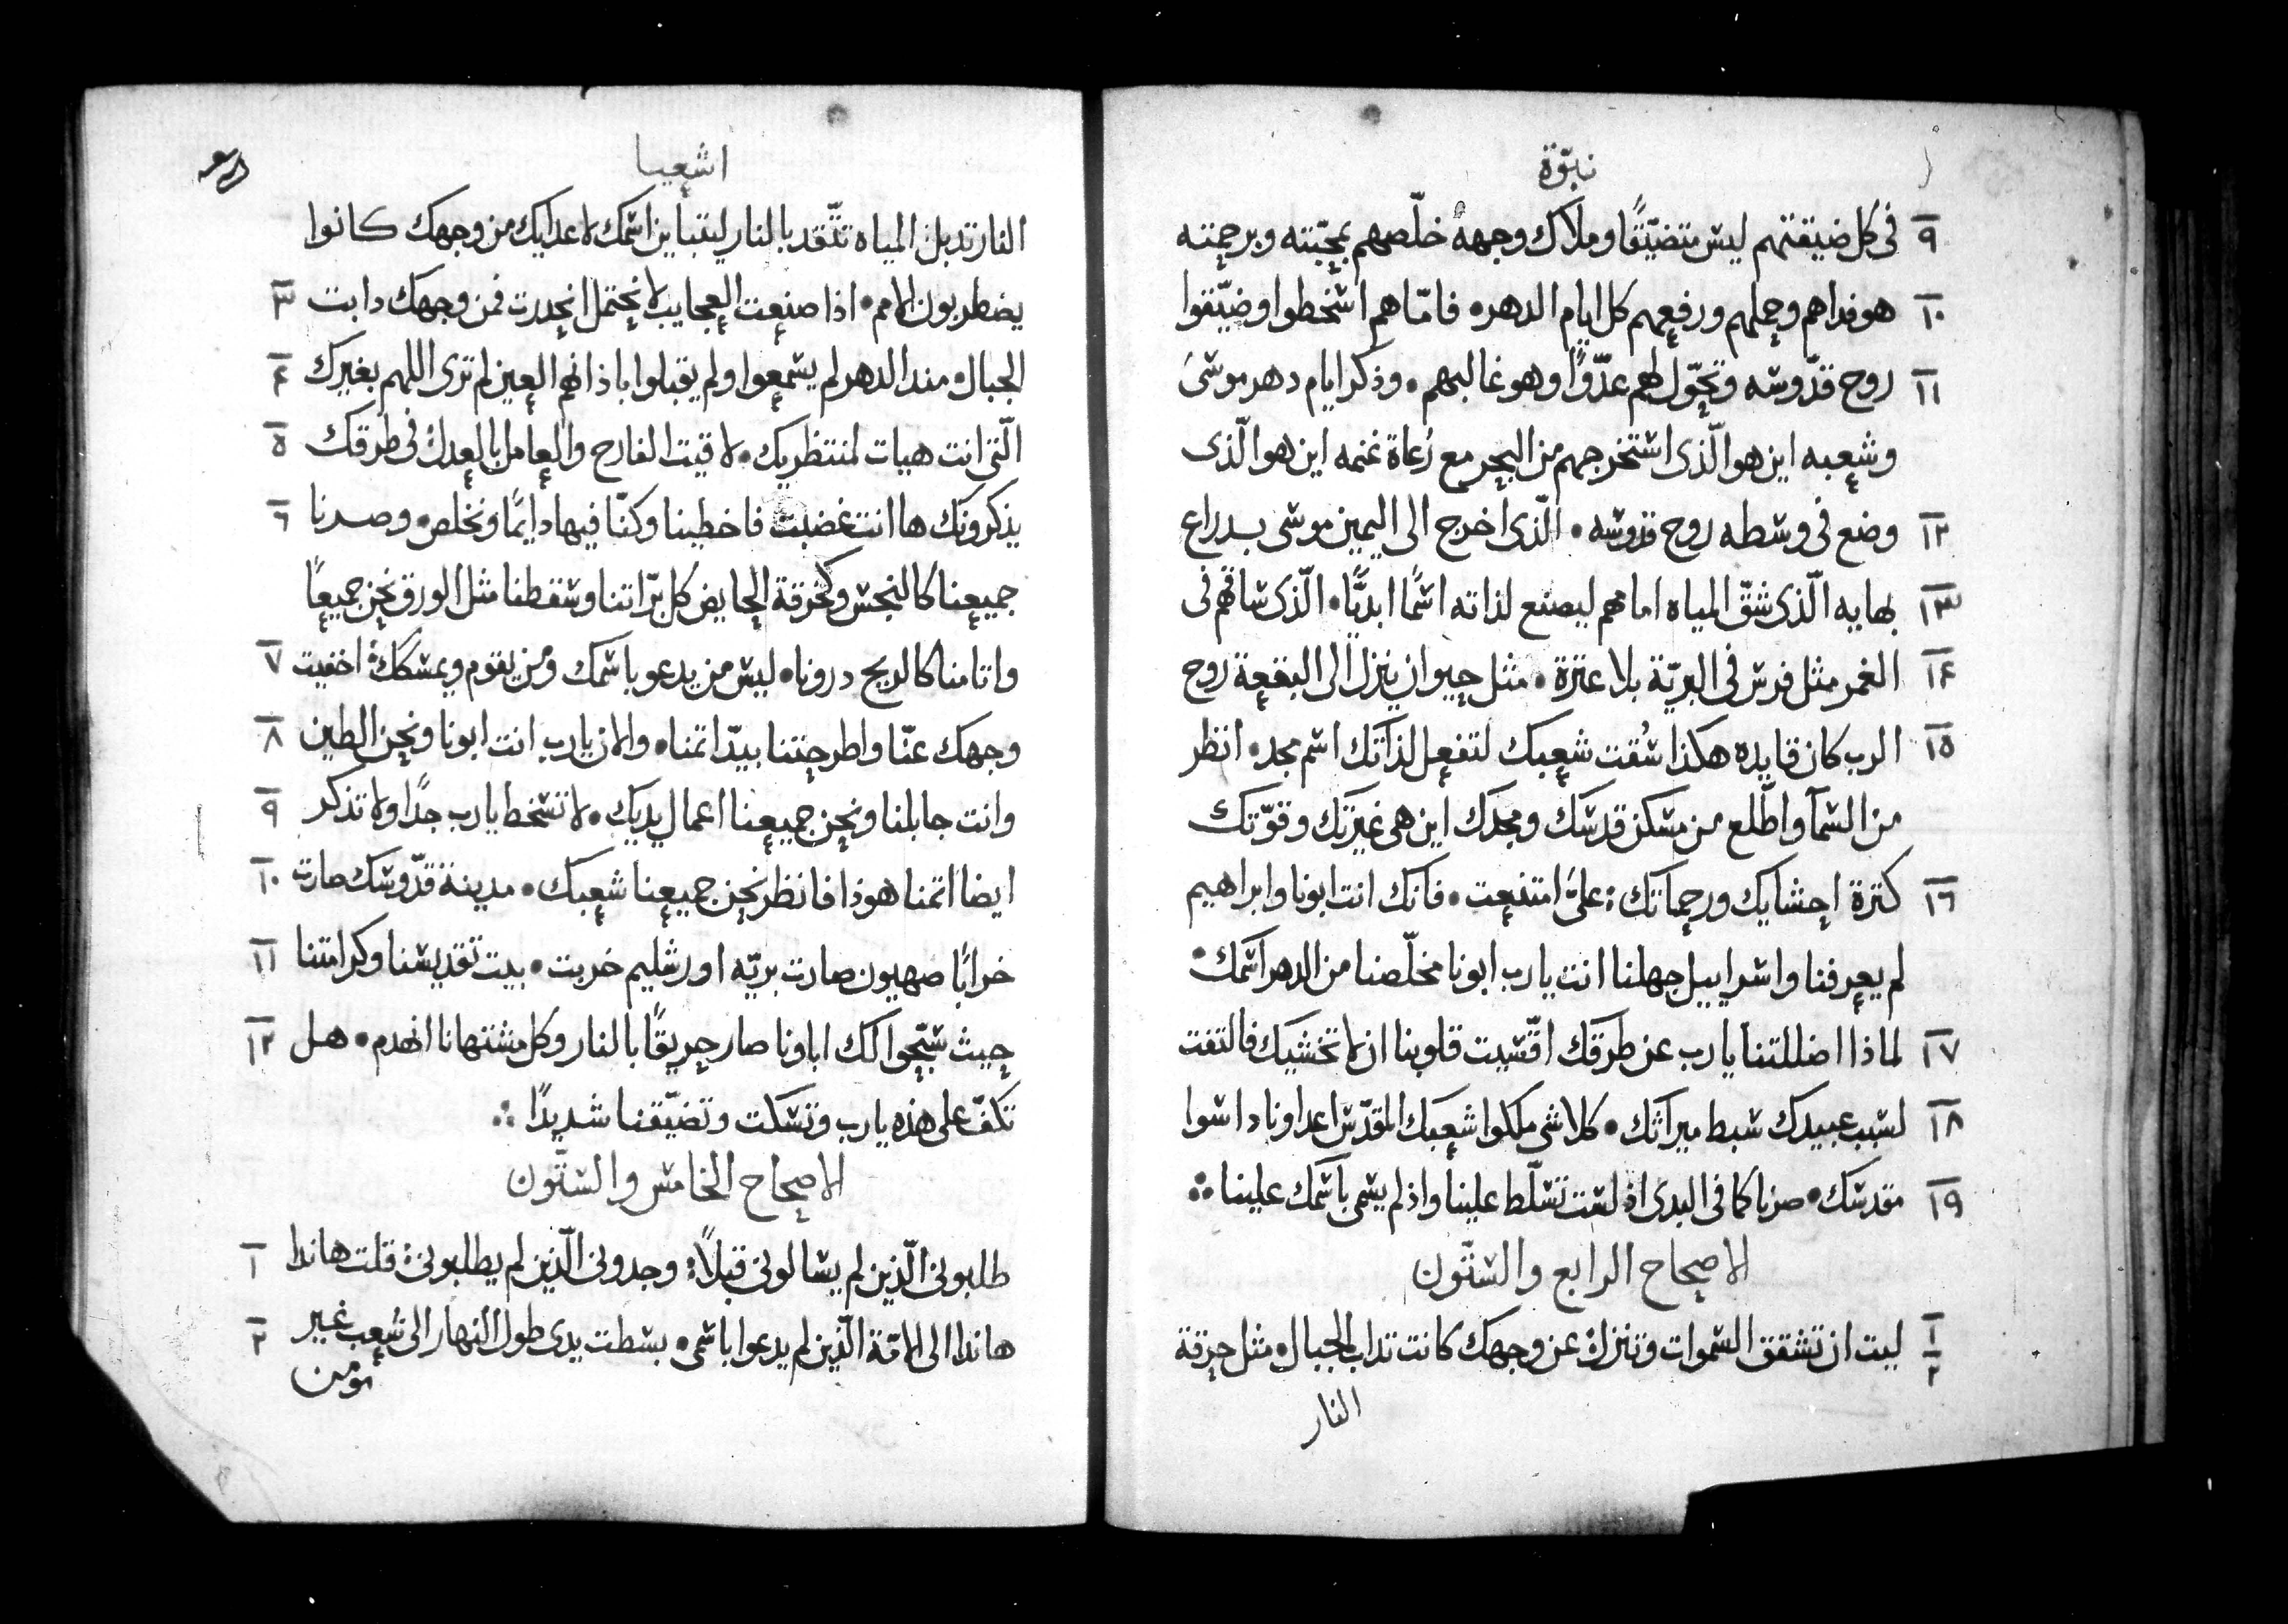 نبوّة
٩ في كل ضيقتهم ليس متضيّقًا وملاك وجهه خلّصهم بمحبّته وبرحمته
١٠ هو فداهم وحملهم ورفعهم كل ايام الدهر • فامّا هم اسخطوا وضيّقوا
١١ روح قدّوسه وتحوّل لهم عدّوًا وهو غالبهم • وذكر ايام دهر موسى
وشعبه اين هو الّذى استخرجهم من البحر مع رُعاة غنمه اين هو الّذى
١٢ وضع في وسطه روح قدوسه • الّذى اخرج الى اليمين موسى بدراع
١٣ بهايه الّذى شقّ المياه امامهم ليصنع لذاته اسمًا ابديًّا • الّذى ساقهم فى
١٤ الغمر مثل فرس فى البريّة بلا عترة • مثل حيوان ينزل الى البقعة روح
١٥ الرب كان قايده هكذا سُقت شعبك لتفعل لذاتك اسم مجد • انظر
من السمآ واطّلع من مسكن قدسك ومجدك اين هى غيرتك وقوّتك
١٦ كترة احشايك ورحماتك : علىّ امتنعت • فانك انت ابونا وابراهيم
لم يعرفنا واسراييل جهلنا انت يارب ابونا مخلّصنا من الدهر اسمك •
١٧ لماذا اضللتنا يارب عن طرقك اقّسيت قلوبنا ان لا تخشيك فالتفت
١٨ لسبب عبيدك سبط ميراتك • كلاشى ملكوا شعبك المقدّس اعداونا داسوا
١٩ مقدسك • صرنا كما فى البدى اذ لست تسلّط علينا واذ لم يسمى باسمك علينا ∴
الاصحاح الرابع والستّون
١ ٢ ليت ان تشقق السموات وتنزل عن وجهك كانت تداب الجبال • مثل حرقة
النار
اشعيا
النار تدبل المياه تتّقد بالنار ليتباين اسمك لاعدايك من وجهك كانوا
٣ يضطربون الامم • اذا صنعت العجايب لا نحتمل انحدرت فمن وجهك دابت
٤ الجبال • مند الدهر لم يسمعوا ولم يقبلوا باذانهم العين لم ترى اللهم بغيرك
٥ الّتى انت هيات لمنتظريك • لاقيت الفارح والعامل بالعدل فى طرقك
٦ يذكرونك ها انت غضبت فاخطينا وكنّا فيها دايمًا ونخلص • وصرنا
جميعنا كالنجس وكخرقة الحايض كل برّاتنا وسقطنا مثل الورق نحن جميعًا
٧ واتامنا كالريح درونا • ليس من يدعو باسمك ومن يقوم ويمسكك : اخفيت
٨ وجهك عنّا واطرحتنا بيدّ اتمنا • والان يارب انت ابونا ونحن الطين
٩ وانت جابلنا ونحن جميعنا اعمال يديك • لا تسخط يارب جدًا ولا تذكر
١٠ ايضا اتمنا هوذا فانظر نحن جميعنا شعبك • مدينة قدّوسك صارت
١١ خرابًا صهيون صارت بريّه اورشليم خربت • بيت تقديسنا وكرامتنا
١٢ حيث سبّحوا لك اباونا صار حريقًا بالنار وكل مشتهانا انهدم • هل
تكفّ على هذه يارب وتسكت وتضيّقنا شديدًا ∴
الاصحاح الخامس والستّون
١ طلبونى الّذين لم يسالونى قبلاً : وجدونى الّذين لم يطلبونى : قلت هاندا
٢ هاندا الى الامّة الّذين لم يدعوا باسمى • بسطت يدى طول النهار الى شعب غير
مومن